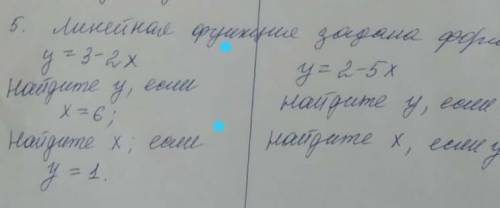 5. Линейная функция задана форм
y = 3 - 2x
Найдите y, если
x = 6;
Найдите x; если
y = 1.
y = 2 - 5x
Найдите y, если
Найдите x, если y